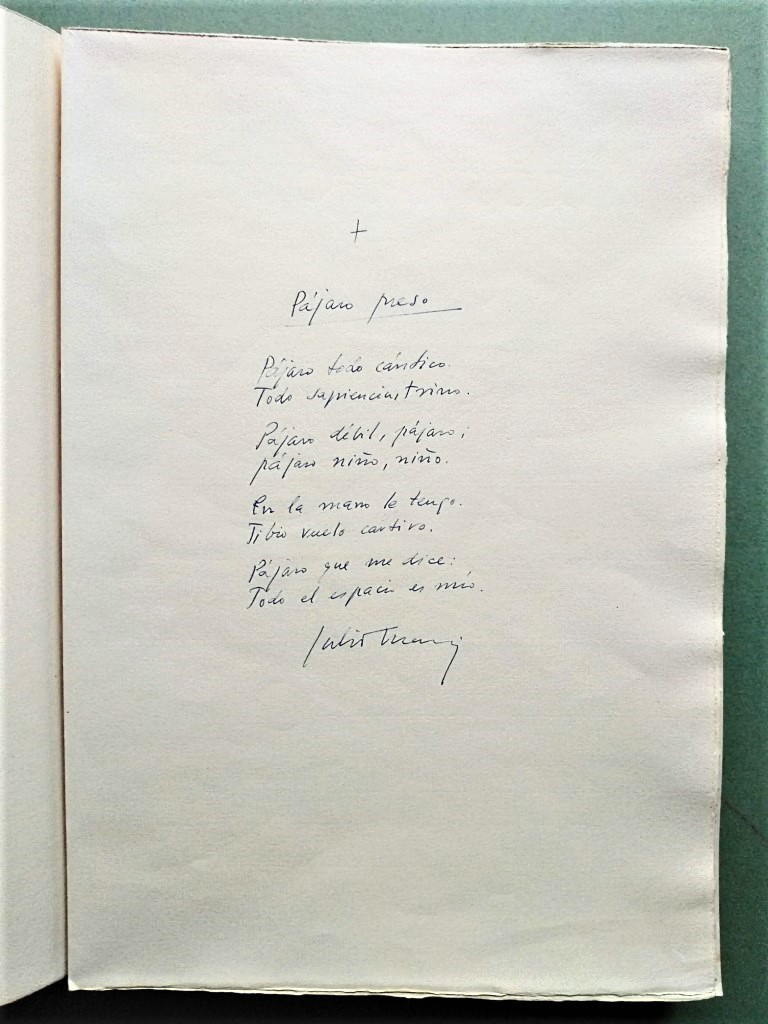 +
Pájaro preso
Pájaro todo cántico.
Todo sapiencia, trino.
Pájaro débil, pájaro;
pájaro niño, niño.
En la mano le tengo.
Tibio vuelo cautivo.
Pájaro que me dice:
Todo el espacio es mío.
Julio